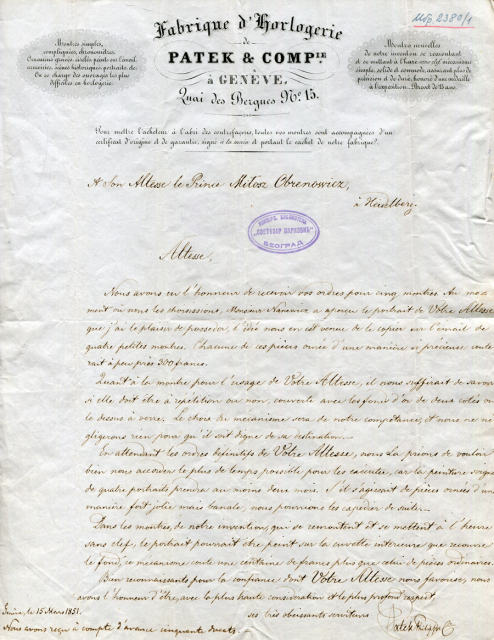 Msp. 2380/1
Fabrique d'Horlogerie
de
PATEK & COMP.IE
à GENÈVE.
Quai des Bergues No. 15.
Montres simples,
compliquées, chronomètres.
On se charge des ouvrages les plus
difficiles en horlogerie.
Montres nouvelles
de notre invention se remontant
et se mettant à l'heure sans clef, mécanisme
simple, solide et commode,
Pour mettre l'acheteur à l'abri des contrefaçons, toutes nos montres sont accompagnées d'un
certificat d'origine et de garantie, signé et portant le cachet de notre fabrique.
A Son Altesse le Prince Milosz Obrenowicz,
à Heidelberg.
"СВЕТОЗАР МАРКОВИЋ"
БЕОГРАД
Altesse,
Nous avons eu l'honneur de recevoir vos ordres pour cinq montres. Au mo-
ment où nous les choisissions, Monsieur a aperçu le portrait de Votre Altesse
que j'ai le plaisir de posseder. L'idée nous en est venue de le copier sur l'émail de
quatre petites montres. Chacune de ces pièces ornée d'une manière si précieuse coute-
rait à peu près 300 francs.
Quant à la montre pour l'usage de Votre Altesse, il nous suffirait de savoir
si elle doit être à répétition ou non, couverte avec les fonds d'or de deux cotés ou
le dessus à verre. Le choix du mécanisme sera de notre compétence, et nous ne né-
gligerons rien pour qu'il soit digne de sa destination.
En attendant les ordres définitifs de Votre Altesse, nous La prions de vouloir
bien nous accorder le plus de temps possible pour les exécuter, car la peinture soignée
de quatre portraits prendra au moins deux mois. S'il s'agissait de pièces ornées d'une
manière fort jolie mais banale, nous pourrions les expédier de suite.
Dans les montres, de notre invention, qui se remontent et se mettent à l'heure
sans clef, le portrait pourrait être peint sur la cuvette intérieure que recouvre
le fond, ce mécanisme coute une centaine de francs plus que celui de pièces ordinaires.
Bien reconnaissants pour la confiance dont Votre Altesse nous favorise, nous
avons l'honneur d'être, avec la plus haute considération et le plus profond respect
ses très obéissants serviteurs
Genève, le 15 Mars 1851.
Patek Philippe & Co
Nous avons reçu à compte d'avance cinquante ducats.